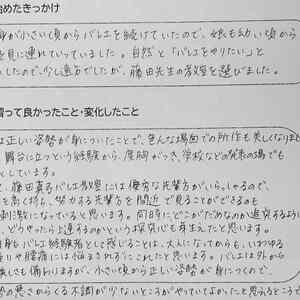 始めたきっかけ
が小さい頃からバレエを続けていたので、娘も幼い頃から
見に連れていっていました。自然と「バレエをやりたい」と
したので、少し遠方でしたが、藤田先生の教室を選びました。
習って良かったこと・変化したこと
は正しい姿勢が身についたことで、色んな場面での所作も美しくなりま
舞台に立つという経験から、度胸がつき、学校などの発表の場でも
しています。
、藤田真弓バレエ教室には優秀な先輩方がいらっしゃるので、
を高く持ち、努力する先輩を間近で見ることができるのも
刺激になっていると思います。同時にどこかだめなのか追究するように
、どうやったら上達するのかという探究心も芽生えたと思います。
自身もバレエ経験者として感じることは、大人になってからも、いわゆる
や腰痛には悩まされずにこれたと思います。バレエは外から
美しさも備わりますが、小さい頃から正しい姿勢が身につくので、
勢の悪さからくる不調が少ないところがやっていてよかったと思えるところ